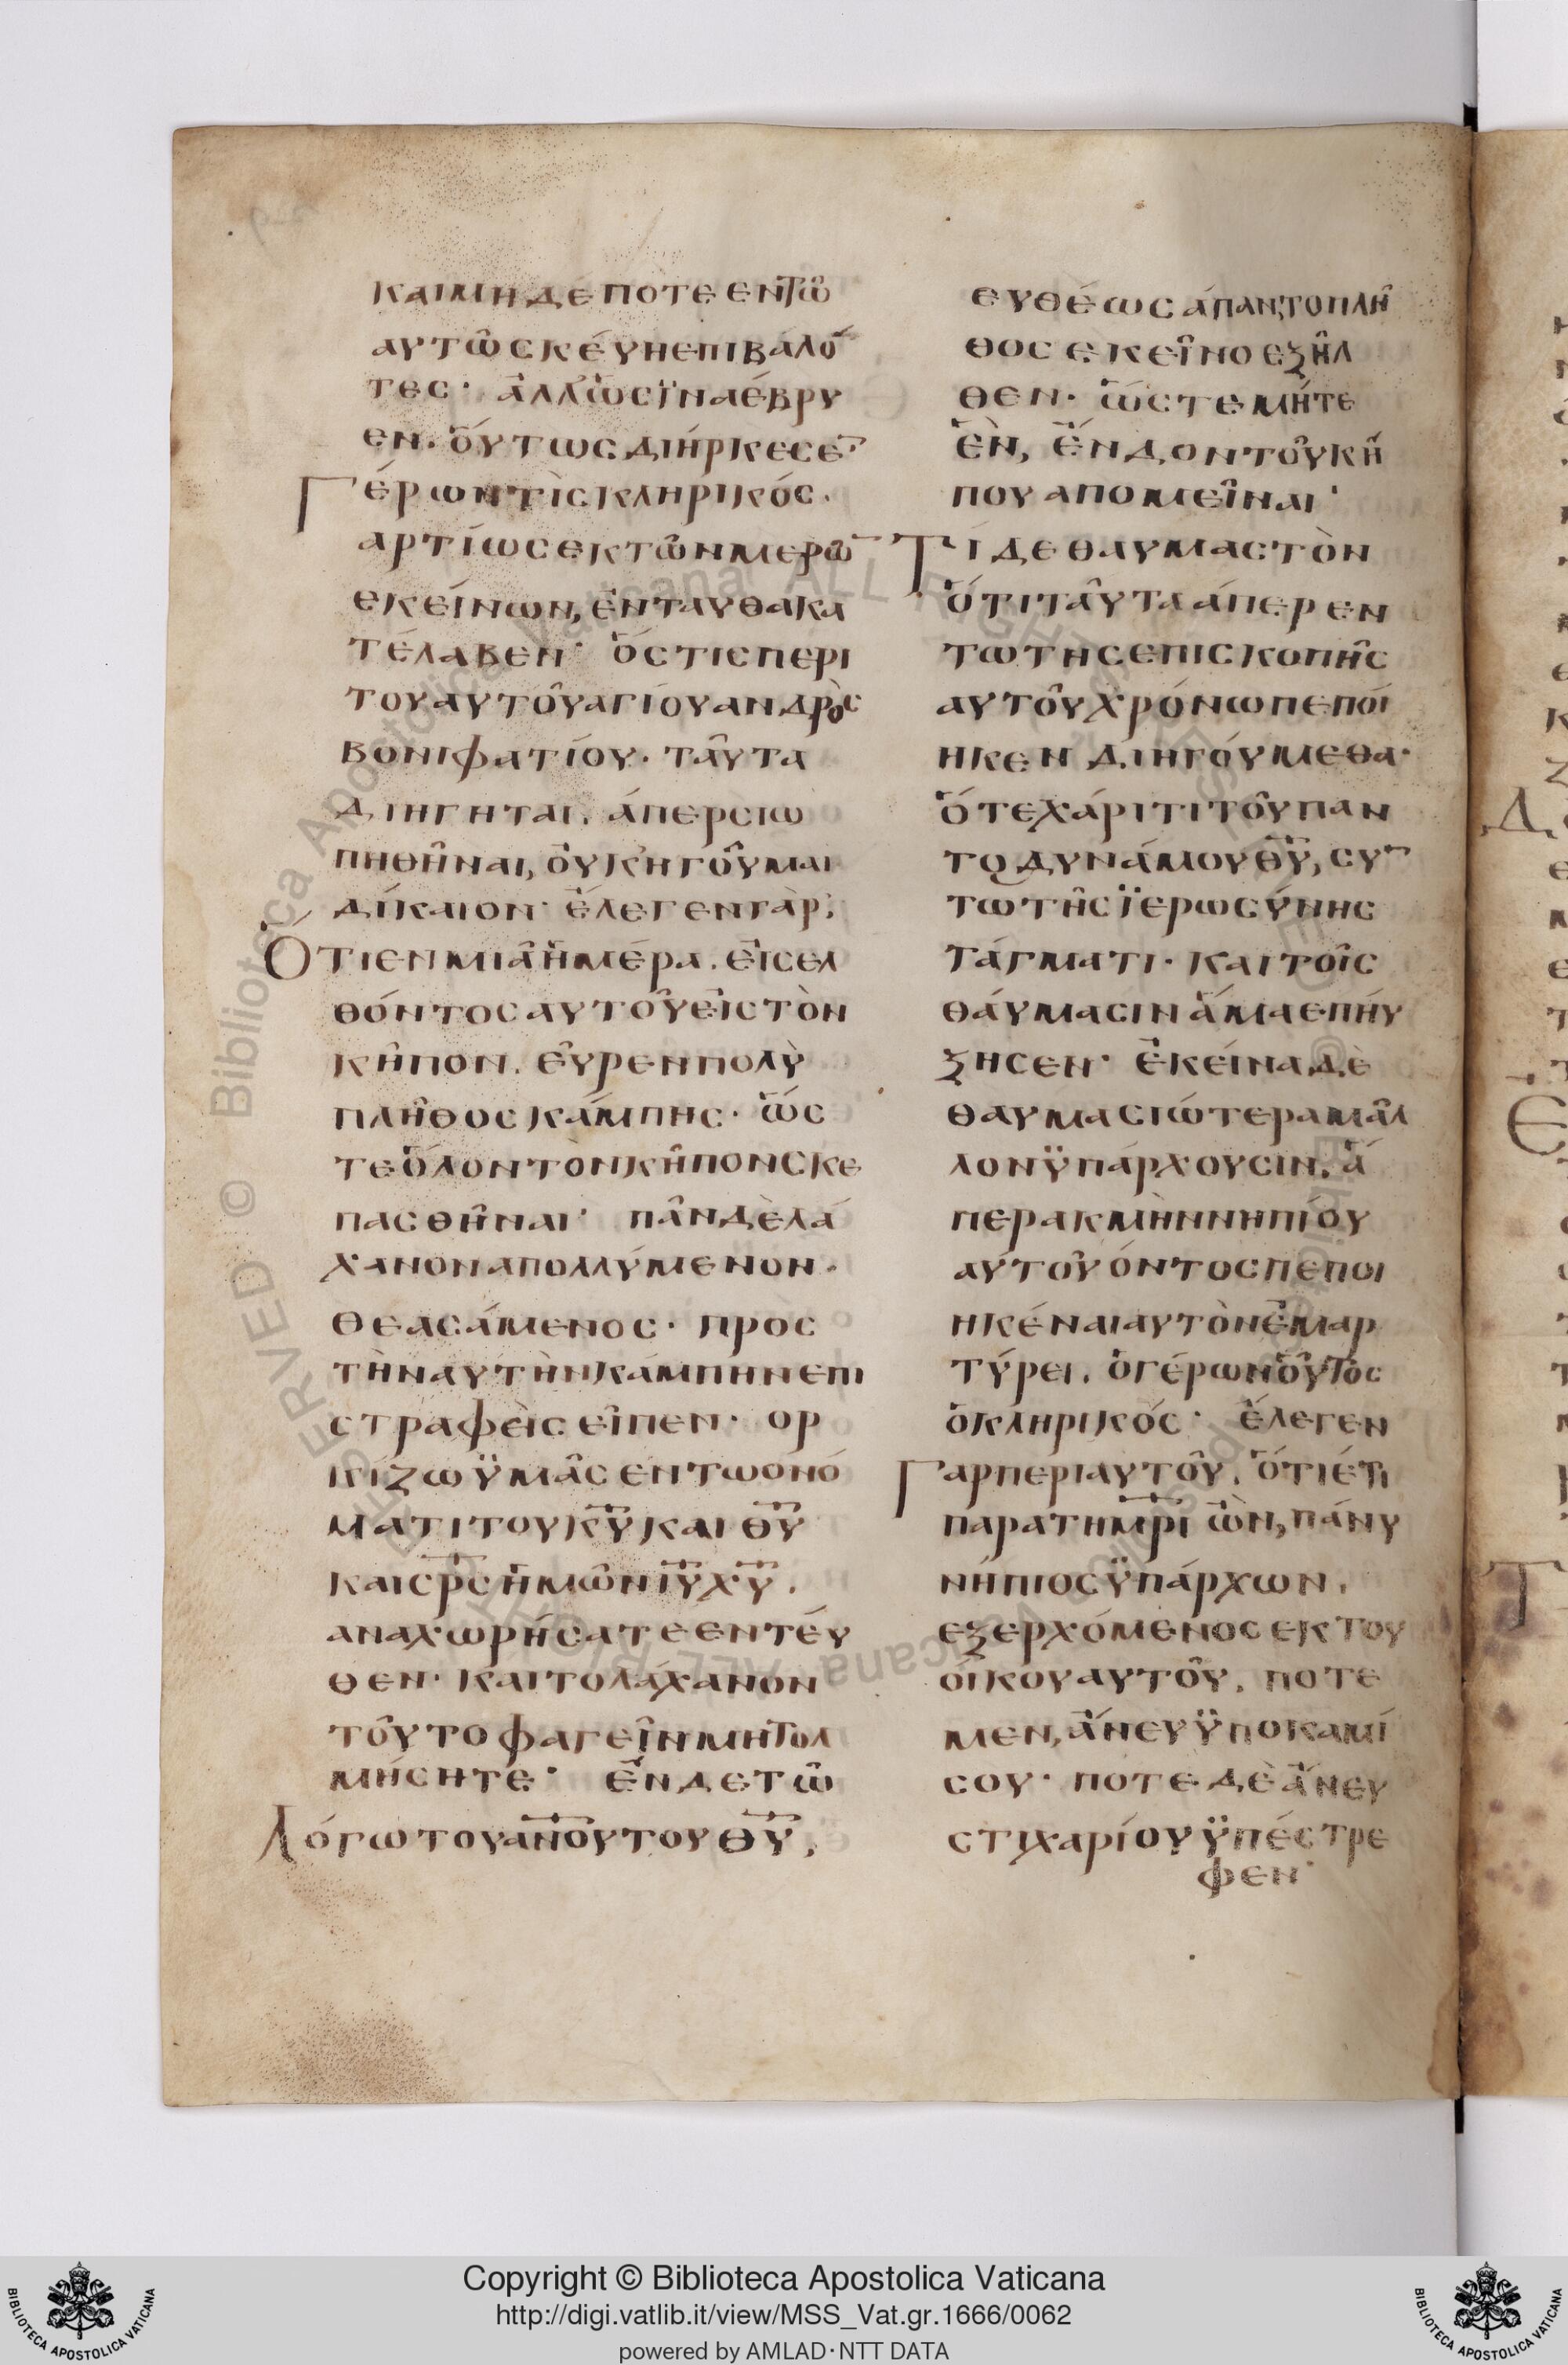 και μη δέ ποτε εν τῶ
αυτῶ σκέυη επιβαλό
τες· ἀλλ' ὡς ϊνα έβρυ
εν. ὅυτως διήρκεσε·
Γέρων τὶς κληρικός.
αρτίως εκ τῶν μερῶ
εκείνων, ἐνταυθα κα
τέλαβεν· ὅστις περι
του αυτοῦ αγίου ανδρὸς
βονιφατίου. ταῦτα
διηγηται. άπερ σιω
πηθῆναι, οὐκ ἡγοῦμαι
δίκαιον· ἔλεγεν γὰρ.
Ὅτι εν μιᾶ ἡμέρα. εἰσελ
θόντος αυτοῦ εἰς τὸν
κῆπον. εὗρεν πολὺ
πλῆθος κάμπης· ὥσ
τε ὅλον τὸν κῆπον σκε
πασθῆναι· πᾶν δὲ λά
χανον απολλύμενον.
θεασάμενος· προς
τὴν αυτὴν κάμπην επι
στραφεὶς εἶπεν· ορ
κίζω ϋμᾶς εν τω ονό
ματι του κ̅υ̅ και θ̅υ̅
και σ̅ρ̅ς̅ ἡμῶν ι̅υ̅ χ̅υ̅.
αναχωρήσατε εντέυ
θεν· και το λάχανον
τοῦτο φαγεῖν μη τολ
μήσητε· Ἐν δε τῶ
Λόγω του α̅ν̅ο̅υ̅ του θ̅υ̅,
ευθέως άπαν, το πλῆ
θος εκεῖνο εξῆλ
θεν· ὥστε μήτε
ἓν, ἔνδον τοῦ κή
που απομεῖναι·
Τί δε θαυμαστὸν
ὅτι ταῦτα άπερ εν
τω της επισκοπῆς
αυτοῦ χρόνω πεποί
ηκεν διηγούμεθα·
ὅτε χάριτι τοῦ παν
το δυνάμου θ̅υ̅, συ
τω τῆς ϊερωσύνης
τάγματι· και τοῖς
θάυμασιν ἅμα επήυ
ξησεν· ἐκείνα δὲ
θαυμασιώτερα μᾶλ
λον ϋπάρχουσιν. ἅ
περ ακμὴν νηπίου
αύτοῦ όντος πεποι
ηκέναι αυτὸν ἐμαρ
τύρει. ὁ γέρων οὗτος
ὁ κληρικός· ἔλεγεν
Γαρ περι αυτοῦ. ὅτι έτι
παρα τη μ̅ρ̅ι̅ ὢν, πάνυ
νήπιος ϋπάρχων.
εξερχόμενος εκ του
οίκου αυτοῦ. ποτε
μεν, ἄνευ ϋποκαμί
σου· ποτε δὲ ἄνευ
στιχαρίου ϋπέστρε
φεν·
© Biblioteca Apostolica Vaticana ALL RIGHTS RESERVED
Copyright © Biblioteca Apostolica Vaticana
http://digi.vatlib.it/view/MSS_Vat.gr.1666/0062
powered by AMLAD·NTT DATA
BIBLIOTECA APOSTOLICA VATICANA
BIBLIOTECA APOSTOLICA VATICANA